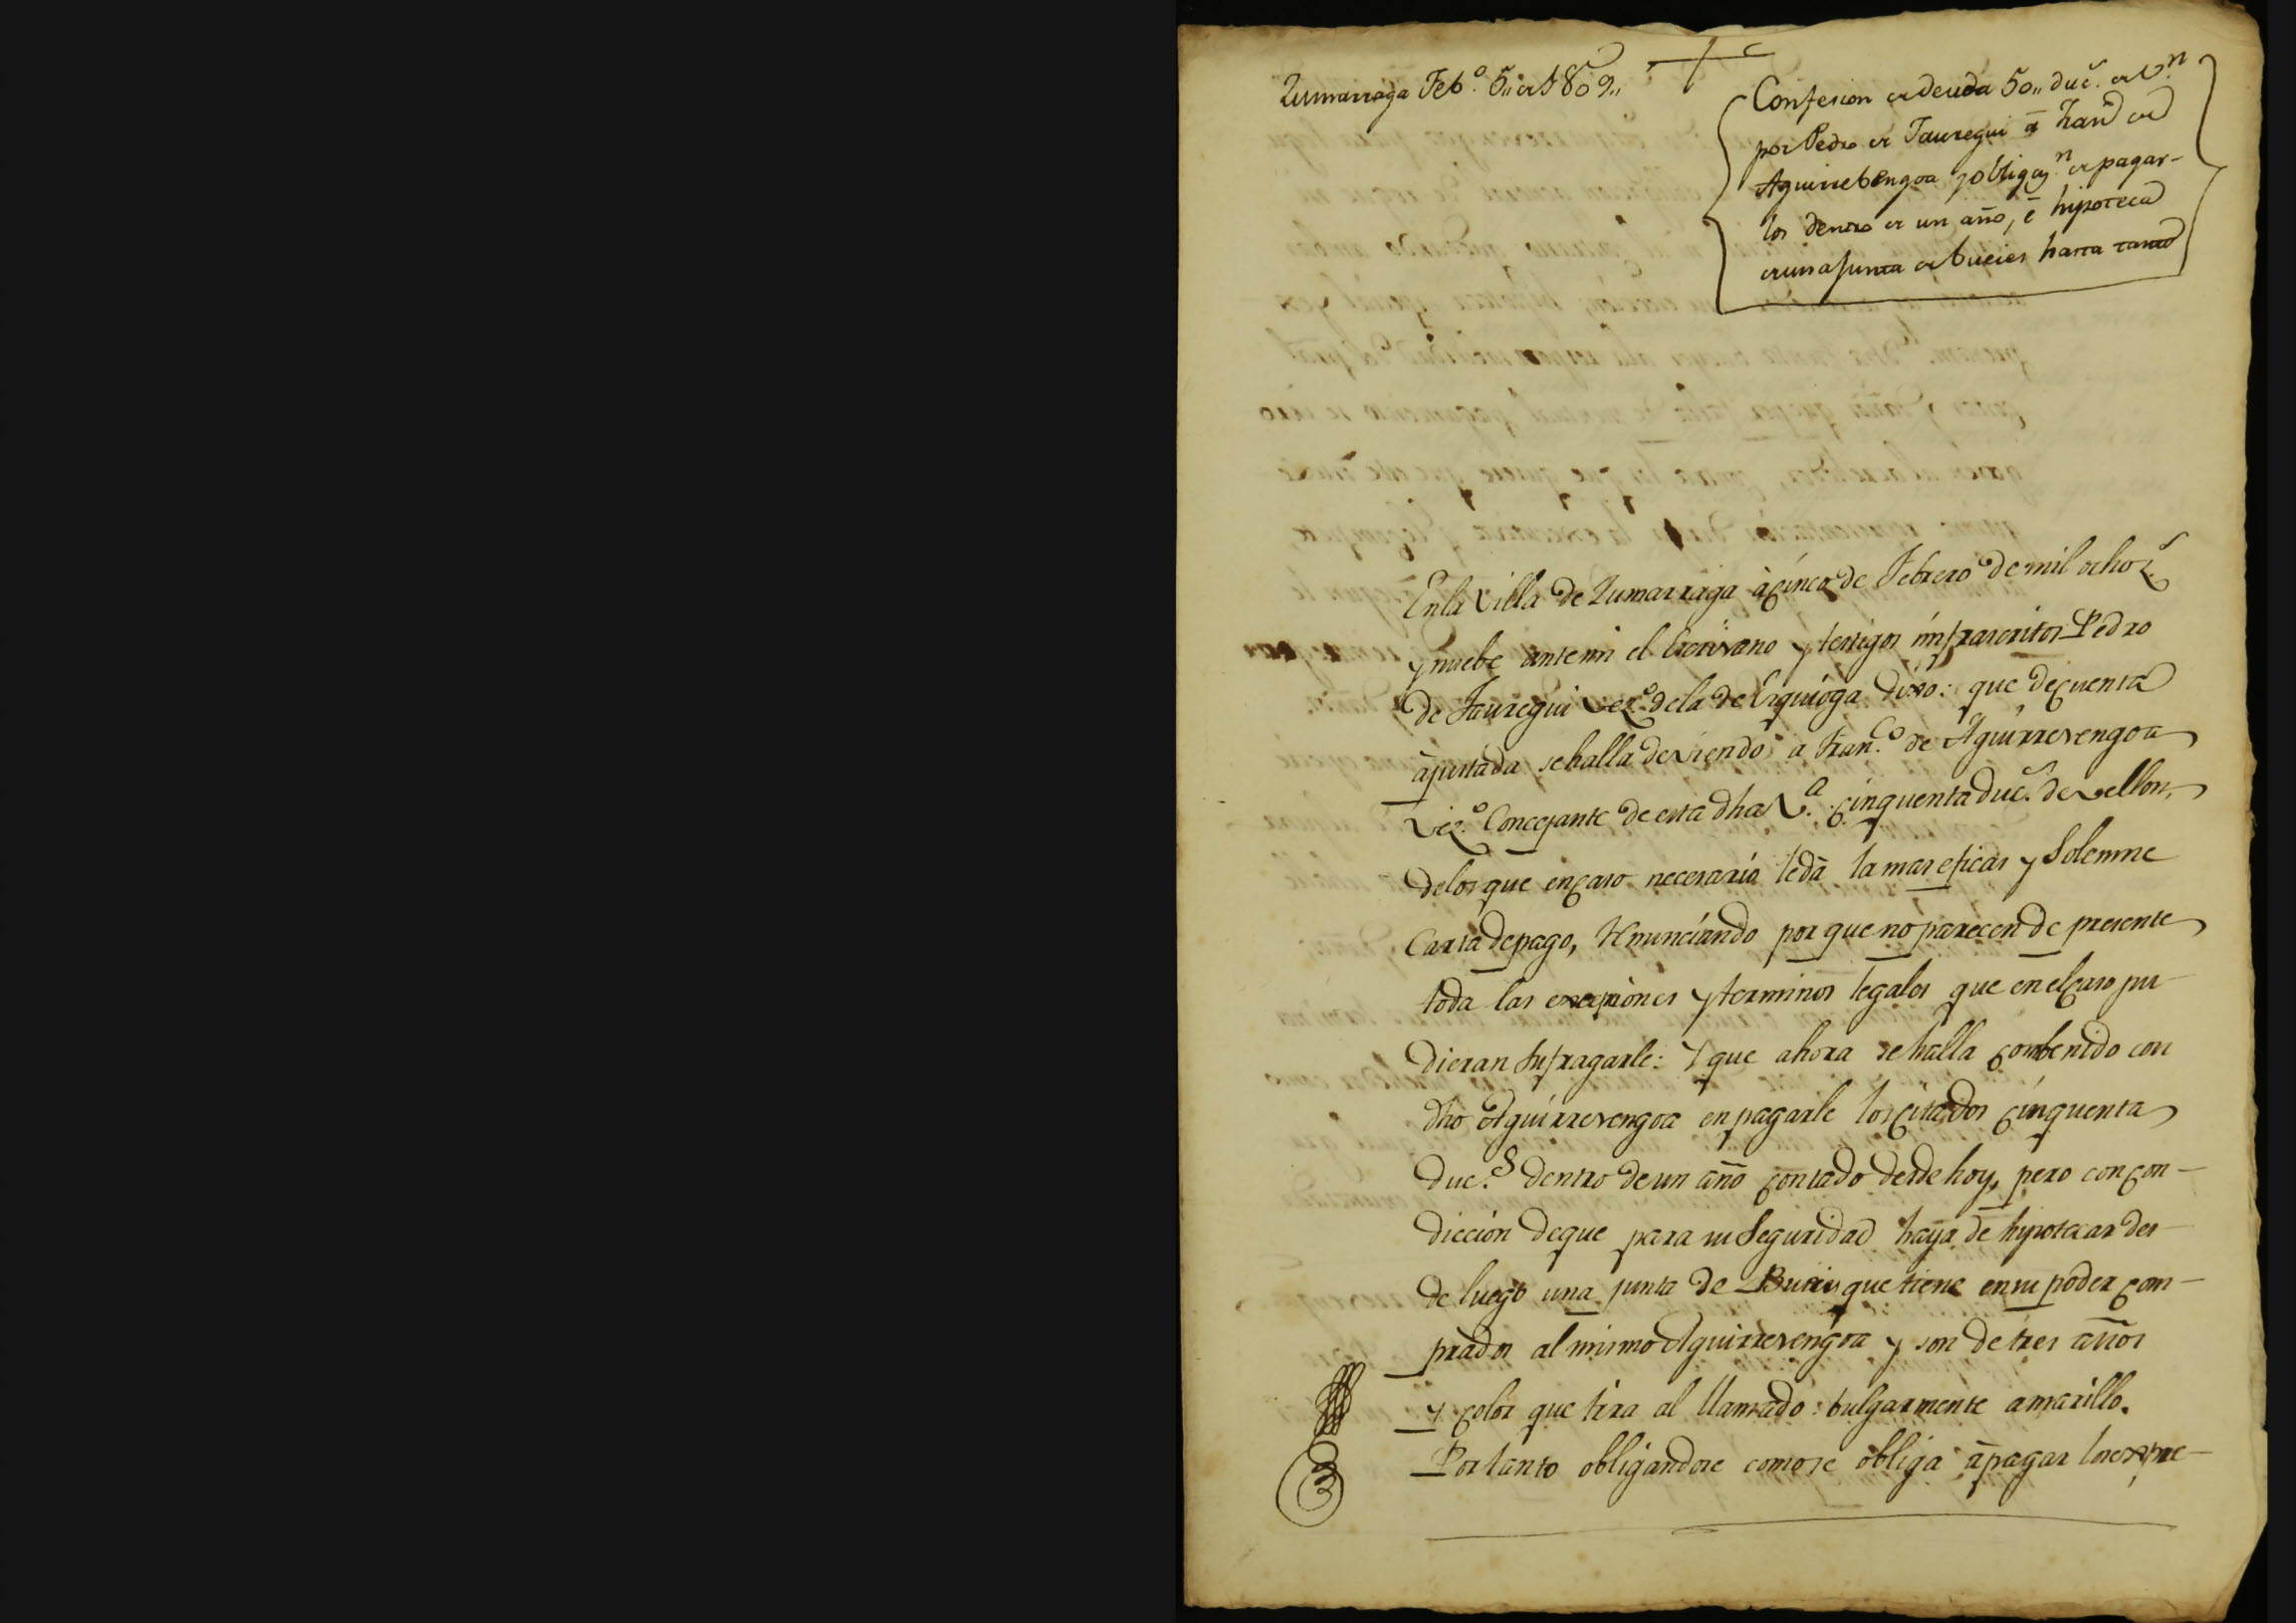 Zumarraga Feb.º 5,, de 1809,,
Confesion de deuda 50,, duc.s de V.n
por Pedro de Jauregui á Fran.co de
Aguirrebengoa y obligaz.n de pagar-
los dentro de un año, é hipoteca
de una junta de bueies hasta tanto
En la Villa de Zumarraga à cinco de Febrero de mil ochoz.s
y nuebe ante mi el Escrivano y testigos infrascritos Pedro
de Jauregui vez.º de la de Ezquioga dixo: que de cuenta
àjustada se halla deviendo à Fran.co de Aguirrevengoa
vez.º Concejante de esta dha V.a cinquenta duc.s de vellon,
de los que en caso necesario le dà la mas eficas y Solemne
Carta de pago, renunciando por que no parecen de presente
toda las excepciones y terminos legales que en el caso pu-
dieran Sufragarle: Y que ahora se halla combenido con
dho Aguirrevengoa en pagarle los citados cinquenta
duc.s dentro de un año contado desde hoy, pero con con-
diccion de que para su Seguridad haya de hipotecar des-
de luego una junta de Bueies que tiene en su poder com-
prados al mismo Aguirrevengoa y son de tres años
y color que tira al llamado bulgarmente amarillo.
Por tanto obligandose como se obliga à pagar los expre-